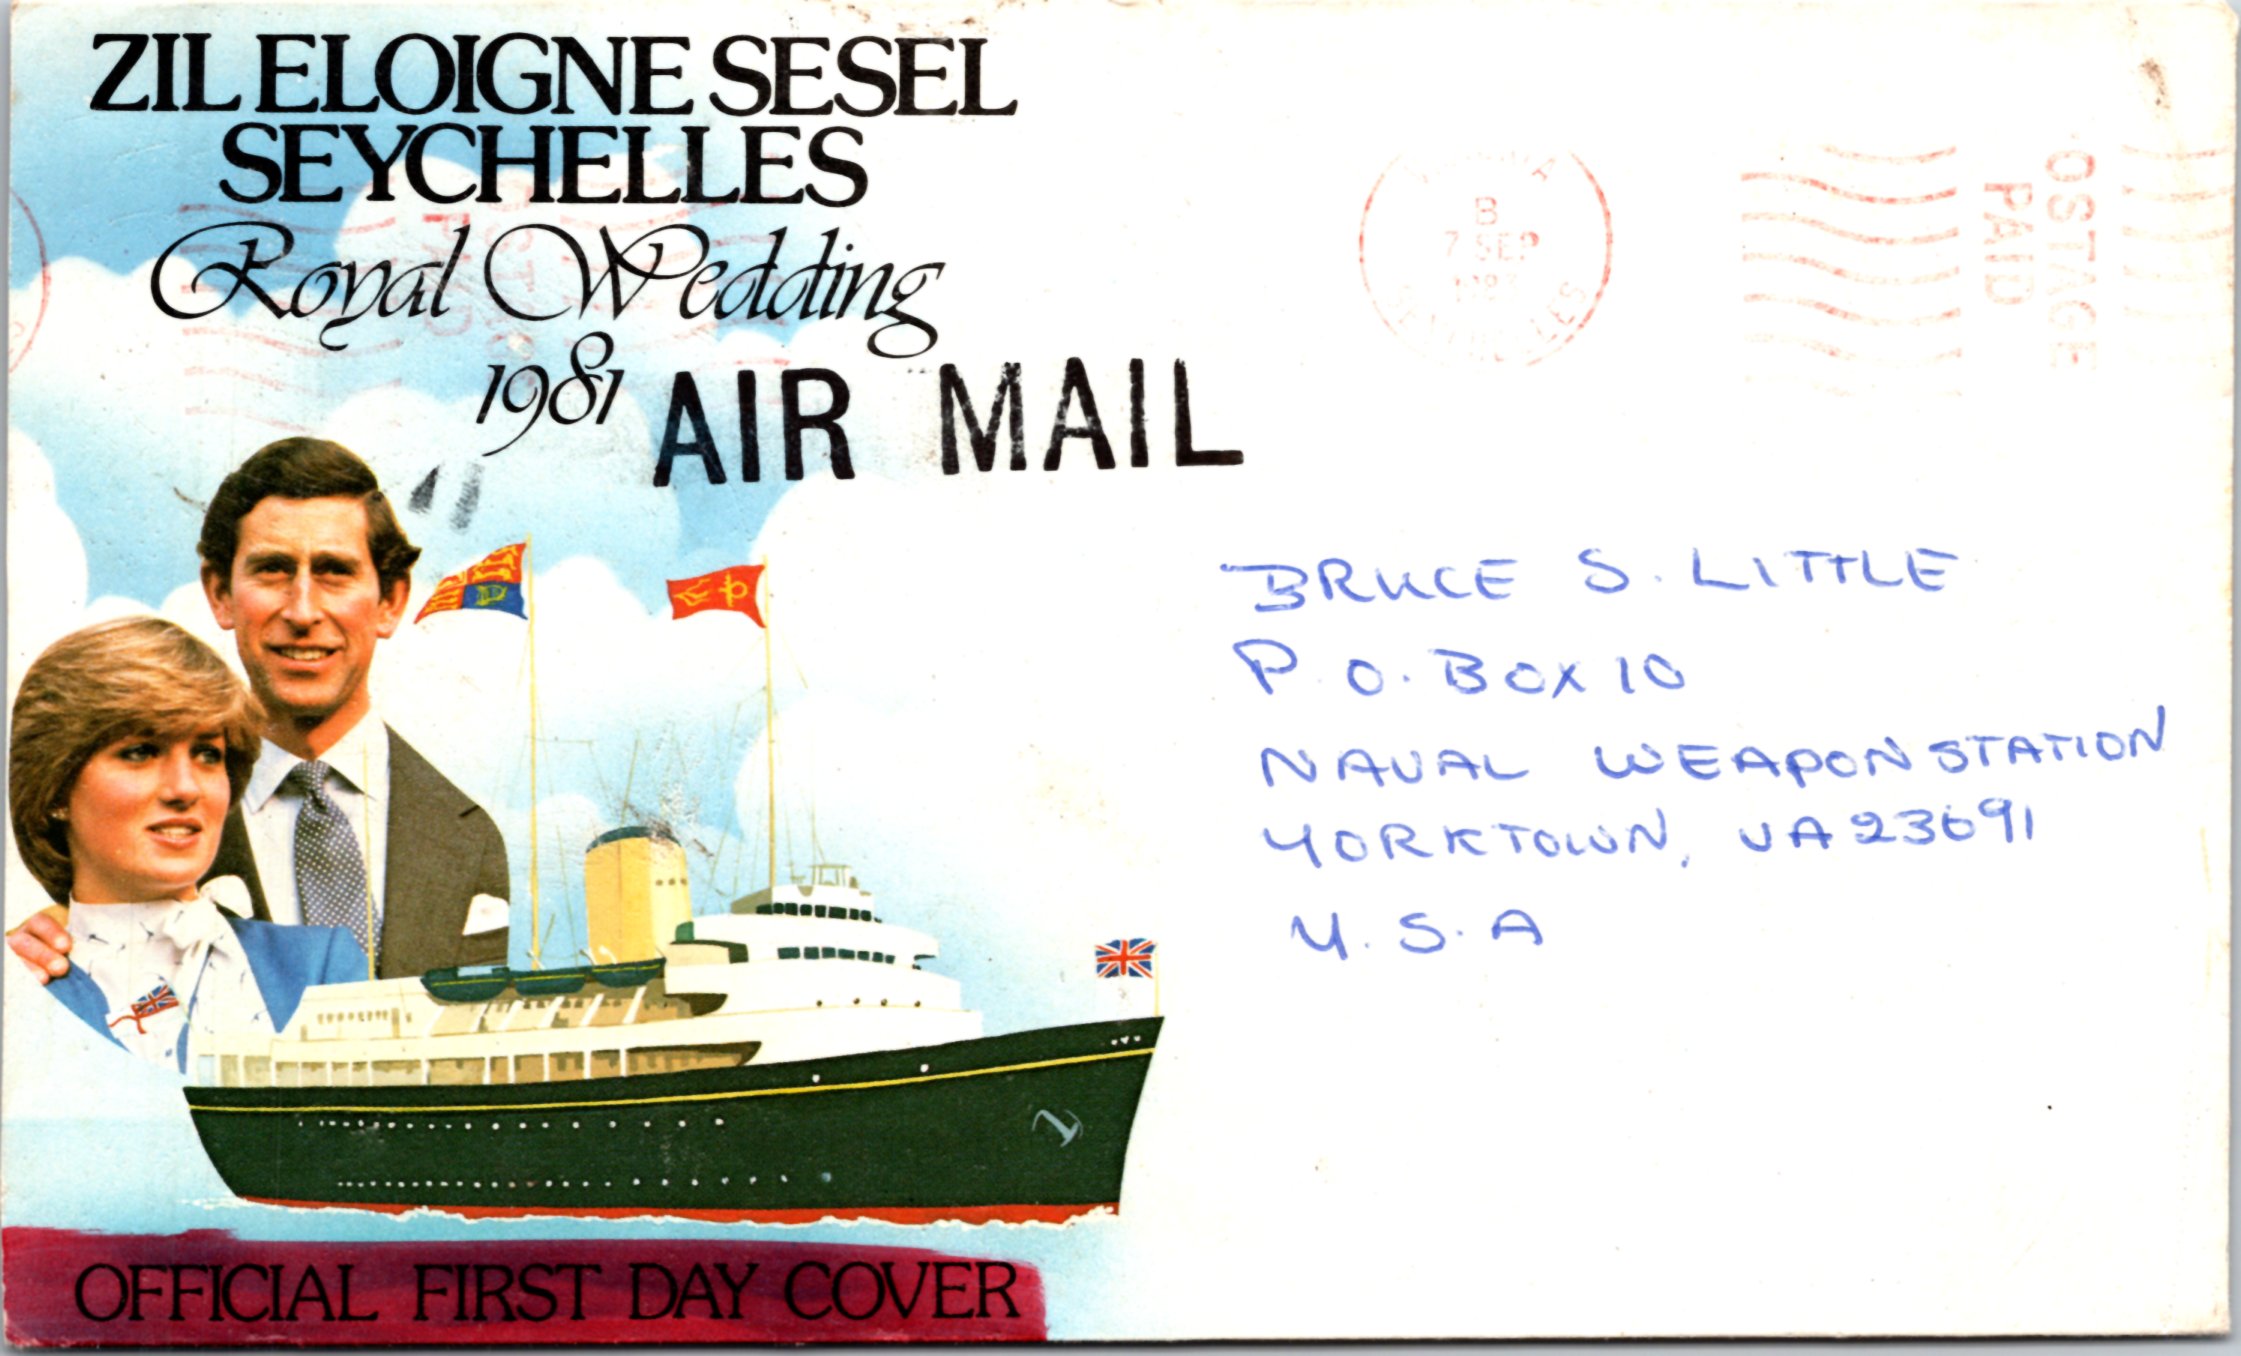 ZIL ELOIGNE SESEL
SEYCHELLES
Royal Wedding
1981
AIR MAIL
B
7 SEP
SEYCHELLES
POSTAGE
PAID
POSTAGE
PAID
BRUCE S. LITTLE
P.O. BOX 10
NAVAL WEAPON STATION
YORKTOWN, VA 23691
U.S.A
OFFICIAL FIRST DAY COVER